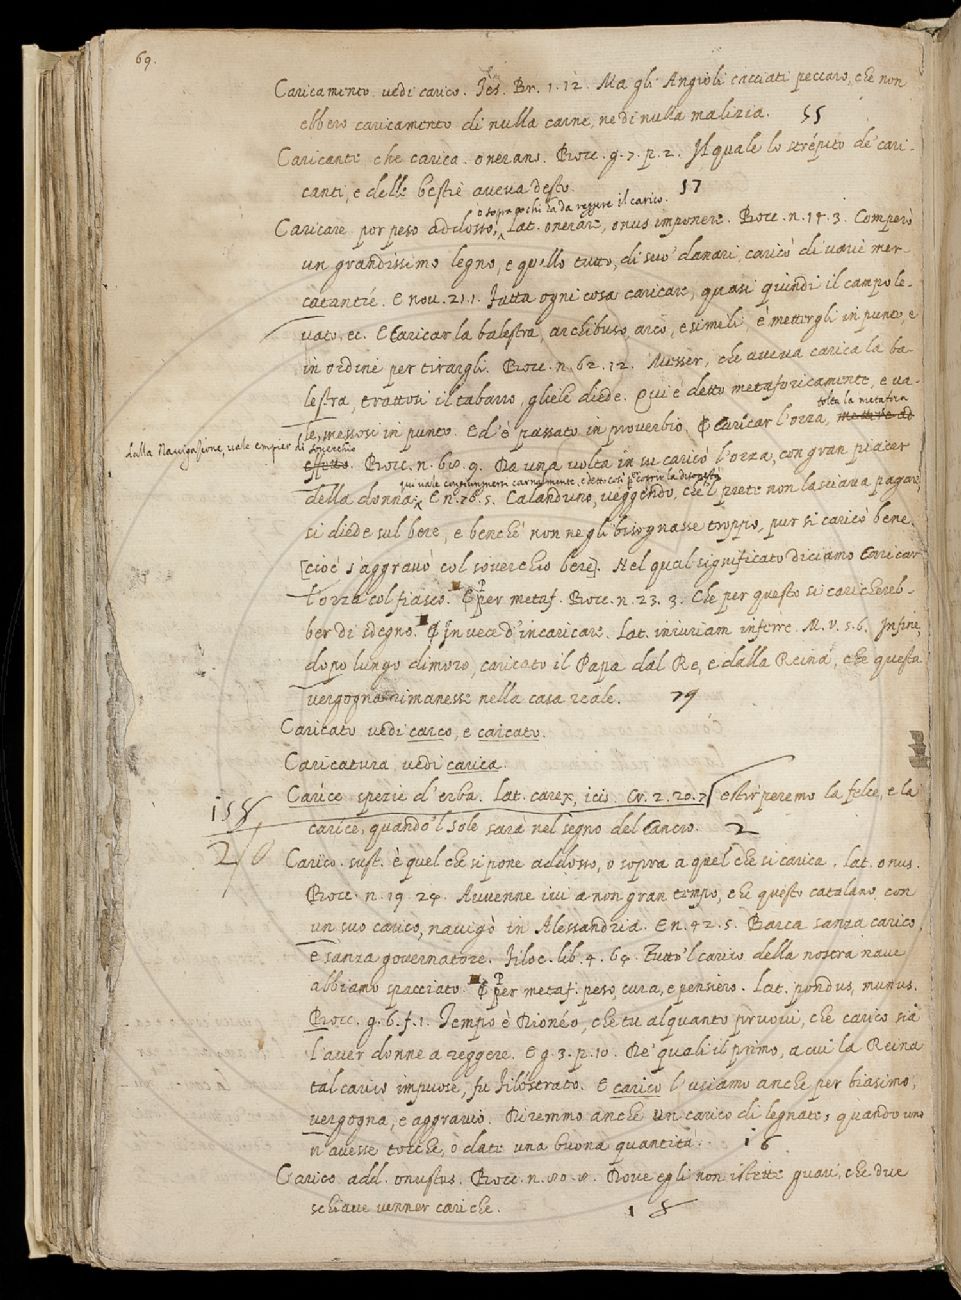 69.
Caricamento. vedi carico. Tes. Br. 1. 12. Ma gli Angioli cacciati peccaro, che non
ebbero caricamento di nulla carne, ne di nulla malizia. 55
Caricante che carica. onerans. Bocc. g. 7. p. 2. Il quale lo strépito de' cari-
canti, e delle bestie aveva desto. 17
o sopra chi ha da reggere il carico.
Caricare porpeso addosso, Lat. onerare, onus imponere. Bocc. n. 14. 3. Comperò
un grandissimo legno, e quello tutto, di suo' danari, caricò di varie mer-
catantíe. E nov. 21. 1. Fatta ogni cosa caricare, quasi quindi il campo le-
vato, ec. E Caricar la balestra, archibuso, arco, e simili, è mettergli in punto, e
in ordine per tirargli. Bocc. n. 62. 12. Messer, che aveva carica la ba-
lestra, trattosi il tabarro, gliele diede. Qui è detto metaforicamente, e va-
tolta la metafora
le, messosi in punto. Ed è passato in proverbio. Caricar l'orza, mettere ad
dalla Navigazione, vale empier di soverchio
effetto. Bocc. n. 60. 9. Da una volta in su caricò l'orza, con gran piacer
qui vale congiugnersi carnalmente, e detto così p. coprir la disonestà
della donna. E n. 76. 5. Calandrino, veggendo, che 'l prete non lasciava pagare,
si diede sul bere, e benché non ne gli bisognasse troppo, pur si caricò bene.
[cioè s'aggravò col soverchio bere]. Nel qual significato diciamo Caricar
l'orza col fiasco. E per metaf. Bocc. n. 23. 3. Che per questo si carichereb-
ber di sdegno. In vece d'incaricare. Lat. iniuriam inferre. M. V. 5. 6. Infine,
dopo lungo dimoro, caricato il Papa dal Re, e dalla Reina, che questa
vergogna rimanesse nella casa reale. 79
Caricato vedi carco, e carcato.
Caricatura vedi carica.
Càrice spezie d'erba. Lat. carex, icis. Cr. 2. 20. 7 estirperemo la felce, e la
158
carice, quando 'l Sole sarà nel segno del Cancro. 2
Carico. sust. è quel che si pone addosso, o sopra a quel che si carica. Lat. onus.
Bocc. n. 19. 24. Avvenne ivi a non gran tempo, che questo catalano, con
un suo carico, navigò in Alessandria. E n. 42. 5. Barca sanza carico,
e sanza governatore. Filoc. lib. 4. 64. Tutto 'l carico della nostra nave
abbiamo spacciato. E per metaf. peso, cura, e pensiero. Lat. pondus, munus.
Bocc. g. 6. f. 1. Tempo è Dionéo, che tu alquanto pruovi, che carico sia
l'aver donne a reggere. E g. 3. p. 10. De' quali il primo, a cui la Reina
tal carico impuose, fu Filóstrato. E carico l'usiamo anche per biasimo,
vergogna, e aggravio. Diremmo anche un carico di legnate, quando uno
n'avesse tocche, ò date una buona quantità. 16
Carico. add. onustus. Bocc. n. 80. 8. Dove egli non istette guari, che due
schiave venner cariche. 18